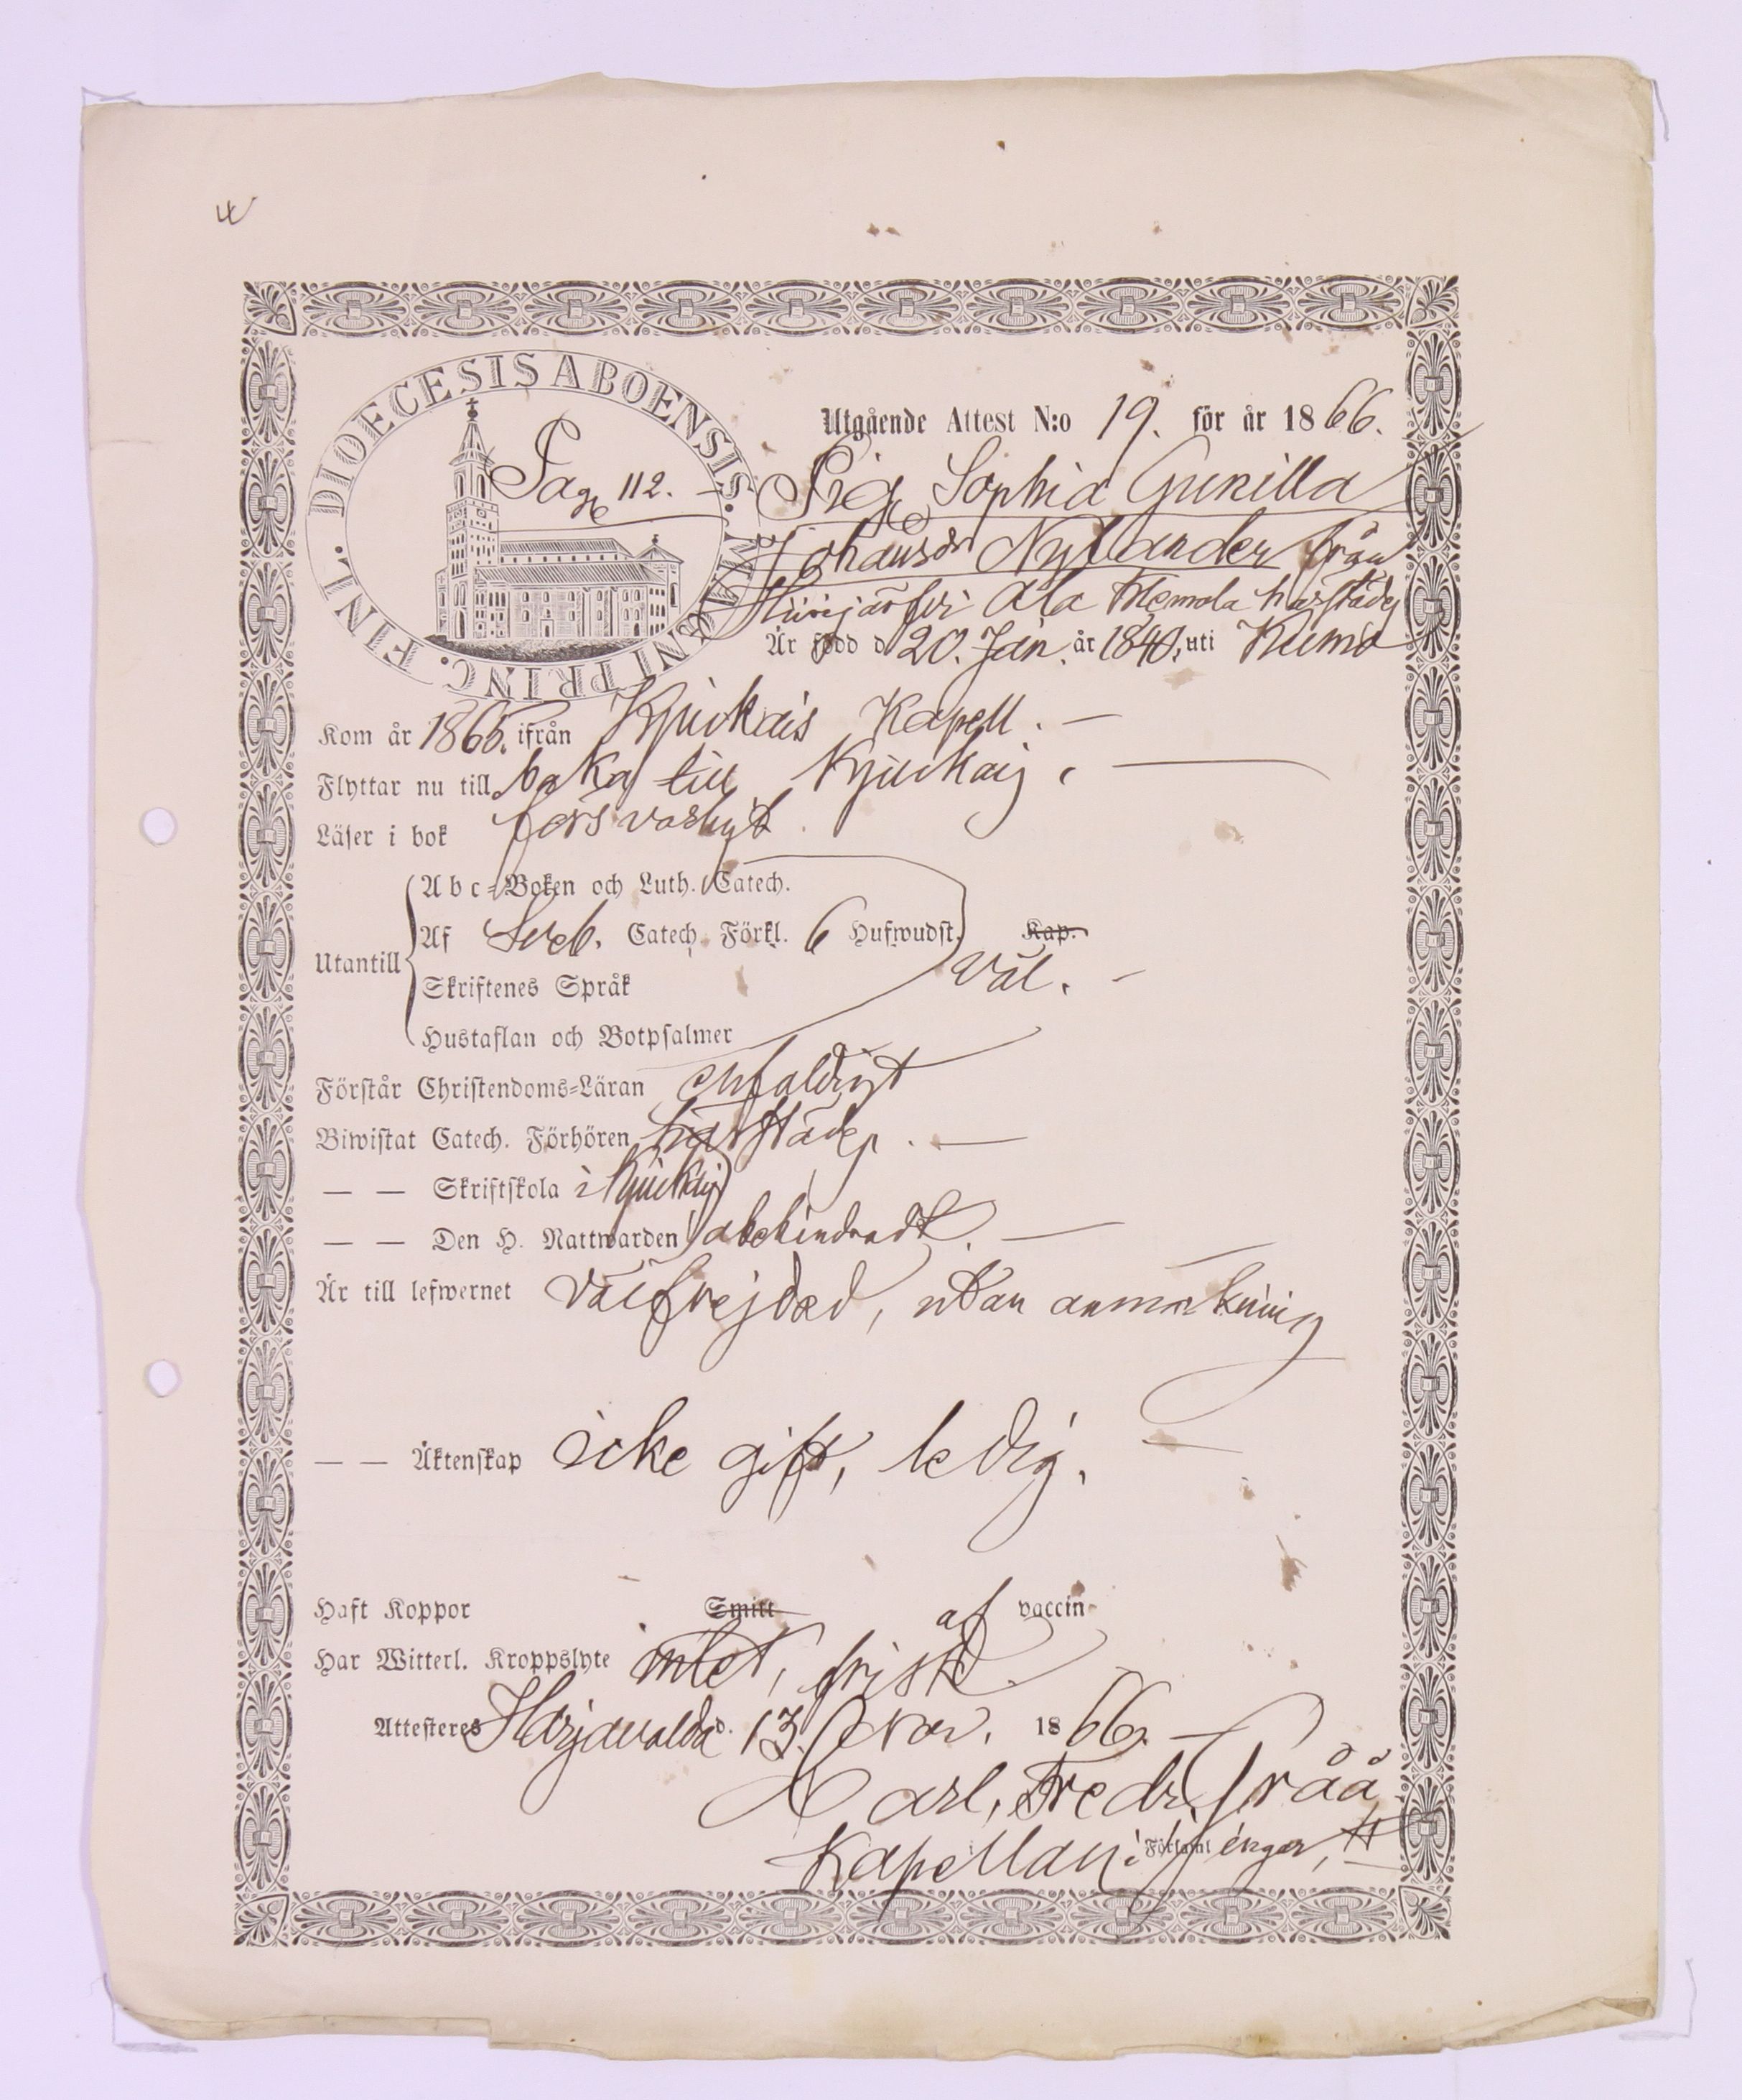 4
DIOECESIS ABOENSIS. MAGNI PRINC. FINL.
Utgående Attest N:o 19. för år 1866.
Page 112. – Pig. Sophia Gunilla
Johansdr Nylander från
Hiirijärfvi Ala Memola härstädes
Är född d 20. Jan. år 1840. uti Kumo
Kom år 1865. ifrån Kjuikais Kapell. –
Flyttar nu till baka till Kjuikais. –
Läser i bok försvarligt
Abc-Boken och Luth. Catech.
Af Sveb. Catech. Förkl. 6 Hufwudst. Kap.
Utantill väl. –
Skriftenes Språk
Hustaflan och Botpsalmer
Förstår Christendoms-Läran enfaldigt
Biwistat Catech. Förhören härstädes. –
— — Skriftskola i Kjuikais
— — Den H. Nattwarden obehindradt. –
Är till lefwernet välfrejdad, utan anmärkning
— — Äktenskap icke gift, ledig.
Haft Koppor Smitt af vaccin
Har Witterl. Kroppslyte intet, frisk.
Attesteras Harjavalda d. 13. Nov. 1866. –
Carl. Fredr.
Kapellan i Församl